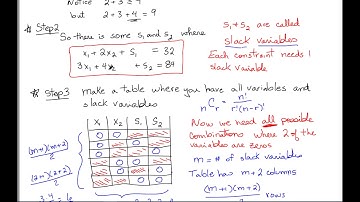 Notice 2+3 ≤ 9
but 2+3+4 = 9
* Step2
So there is some S₁ and S₂ where
x₁ + 2x₂ + S₁ = 32
3x₁ + 4x₂ + S₂ = 84
S₁ + S₂ are called
slack variables
Each constraint needs 1
slack variable
* Step3 make a table where you have all variables and
slack variables
nCr = n!/r!(n-r)!
X₁ X₂ S₁ S₂
0 0
0 0
0 0
0 0
0 0
0 0
(m+1)(m+2)/2
(2+1)(2+2)/2
3·4
Now we need all possible
combinations where 2 of the
variables are zeros
m = # of slack variables
Table has m+2 columns
(m+1)(m+2)/2 rows